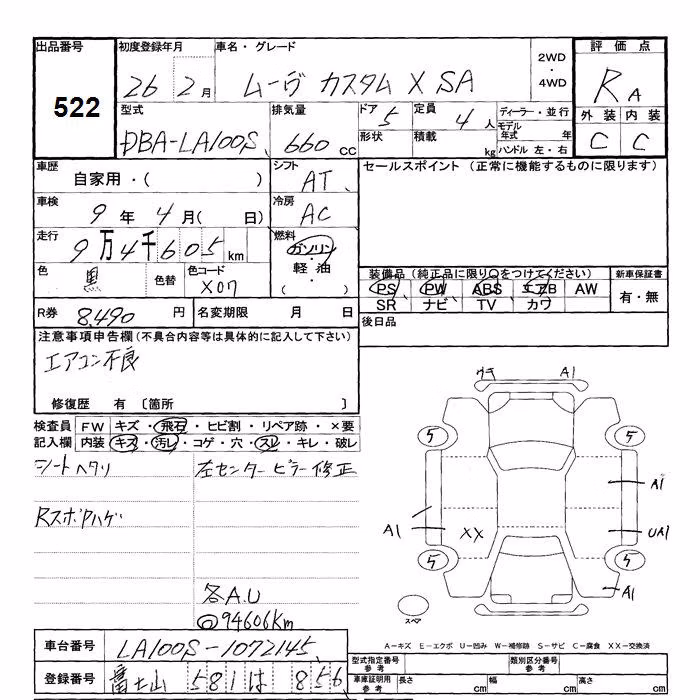 出品番号 初度登録年月 車名・グレード 2WD・4WD 評価点
522 26 2月 ムーヴ カスタム X SA RA
型式 排気量 ドア 5 定員 4人 ディーラー・並行 外装 内装
DBA-LA100S 660cc 形状 積載 kg モデル年式 年 C C
ハンドル 左・右
車歴 自家用・( ) シフト AT セールスポイント (正常に機能するものに限ります)
車検 9年4月( 日) 冷房 AC
走行 9万4千605km 燃料 ガソリン・軽油・( )
色 黒 色替 色コード X07 装備品 (純正品に限り○をつけてください) 新車保証書
PS PW ABS エアB AW 有・無
SR ナビ TV カワ
R券 8,490円 名変期限 月 日 後日品
注意事項申告欄 (不具合内容等は具体的に記入して下さい)
エアコン不良
修復歴 有 〔箇所 〕
検査員 FW キズ・飛石・ヒビ割・リペア跡・×要
記入欄 内装 キズ・汚レ・コゲ・穴・スレ・キレ・破レ
シートヘタリ 左センターピラー修正
RスポPハゲ
各A.U
94606km
ワキ A1
5 5
A1
A1 XX UA1
5 5
A1
スペア
A-キズ E-エクボ U-凹み W-補修跡 S-サビ C-腐食 XX-交換済
車台番号 LA100S-1072145 型式指定番号 参考 類別区分番号 参考
登録番号 富士山 581 は 856 車庫証明用 参考 長さ cm 幅 cm 高さ cm